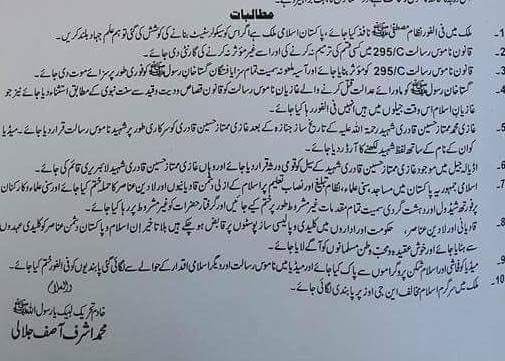 مطالبات
1- ملک میں فی الفور نظام مصطفیٰ ﷺ نافذ کیا جائے، پاکستان اسلامی ملک ہے اگر اس کو سیکولر سٹیٹ بنانے کی کوشش کی گئی تو ہم علم جہاد بلند کریں گے۔
2- قانون ناموس رسالت 295/C میں کسی قسم کی ترمیم نہ کرنے کی اور اسے غیر مؤثر نہ کرنے کی گارنٹی دی جائے۔
3- قانون 295/C کو مؤثر بنایا جائے اور آسیہ ملعونہ سمیت تمام سزا یافتگان گستاخان رسول ﷺ کو فوری طور پر سزائے موت دی جائے۔
4- گستاخ رسول ﷺ کو ماورائے عدالت قتل کرنے والے غازیان ناموس رسالت کو قانون قصاص و دیت وغیرہ سے سنت نبوی کے مطابق استثناء دیا جائے نیز جو
غازیان اسلام اس وقت جیلوں میں ہیں انہیں فی الفور رہا کیا جائے۔
5- غازی محمد ممتاز حسین قادری شہید رحمۃ اللہ علیہ کے تاریخ ساز جنازہ کے بعد غازی ممتاز حسین قادری کو سرکاری طور پر شہید ناموس رسالت قرار دیا جائے۔ میڈیا
کو ان کے نام کے ساتھ لفظ شہید لکھنے کا آرڈر دیا جائے۔
6- اڈیالہ جیل میں موجود غازی ممتاز حسین قادری شہید کے سیل کو قومی ورثہ قرار دیا جائے اور وہاں غازی ممتاز حسین قادری شہید لائبریری قائم کی جائے۔
7- اسلامی جمہوریہ پاکستان میں مساجد، سنی علماء، نظام تبلیغ اور نصاب تعلیم پر اسلام کے ازلی دشمن قادیانیوں اور لادین عناصر کا حملہ ختم کیا جائے اور سنی علماء و کارکنان
پر فورتھ شیڈول اور دہشت گردی سمیت تمام مقدمات غیر مشروط طور پر ختم کیے جائیں اور گرفتار حضرات کو غیر مشروط پر رہا کیا جائے۔
8- قادیانی اور لادین عناصر، حکومت اور اداروں میں کلیدی و پالیسی ساز پوسٹوں پر قابض ہو چکے ہیں بلا تاخیر ان اسلام و پاکستان دشمن عناصر کو کلیدی عہدوں
سے ہٹایا جائے اور خوش عقیدہ و محب وطن مسلمانوں کو آگے لایا جائے۔
9- میڈیا کو فحاشی اور اسلام شکن پروگراموں سے پاک کیا جائے اور میڈیا میں ناموس رسالت اور دیگر اسلامی اقدار کے حوالے سے لگائی گئی پابندیوں کو فی الفور ختم کیا جائے۔
10- ملک میں سرگرم اسلام مخالف این جی اوز پر پابندی لگائی جائے۔
خادم تحریک لبیک یا رسول اللہ ﷺ
محمد اشرف آصف جلالی